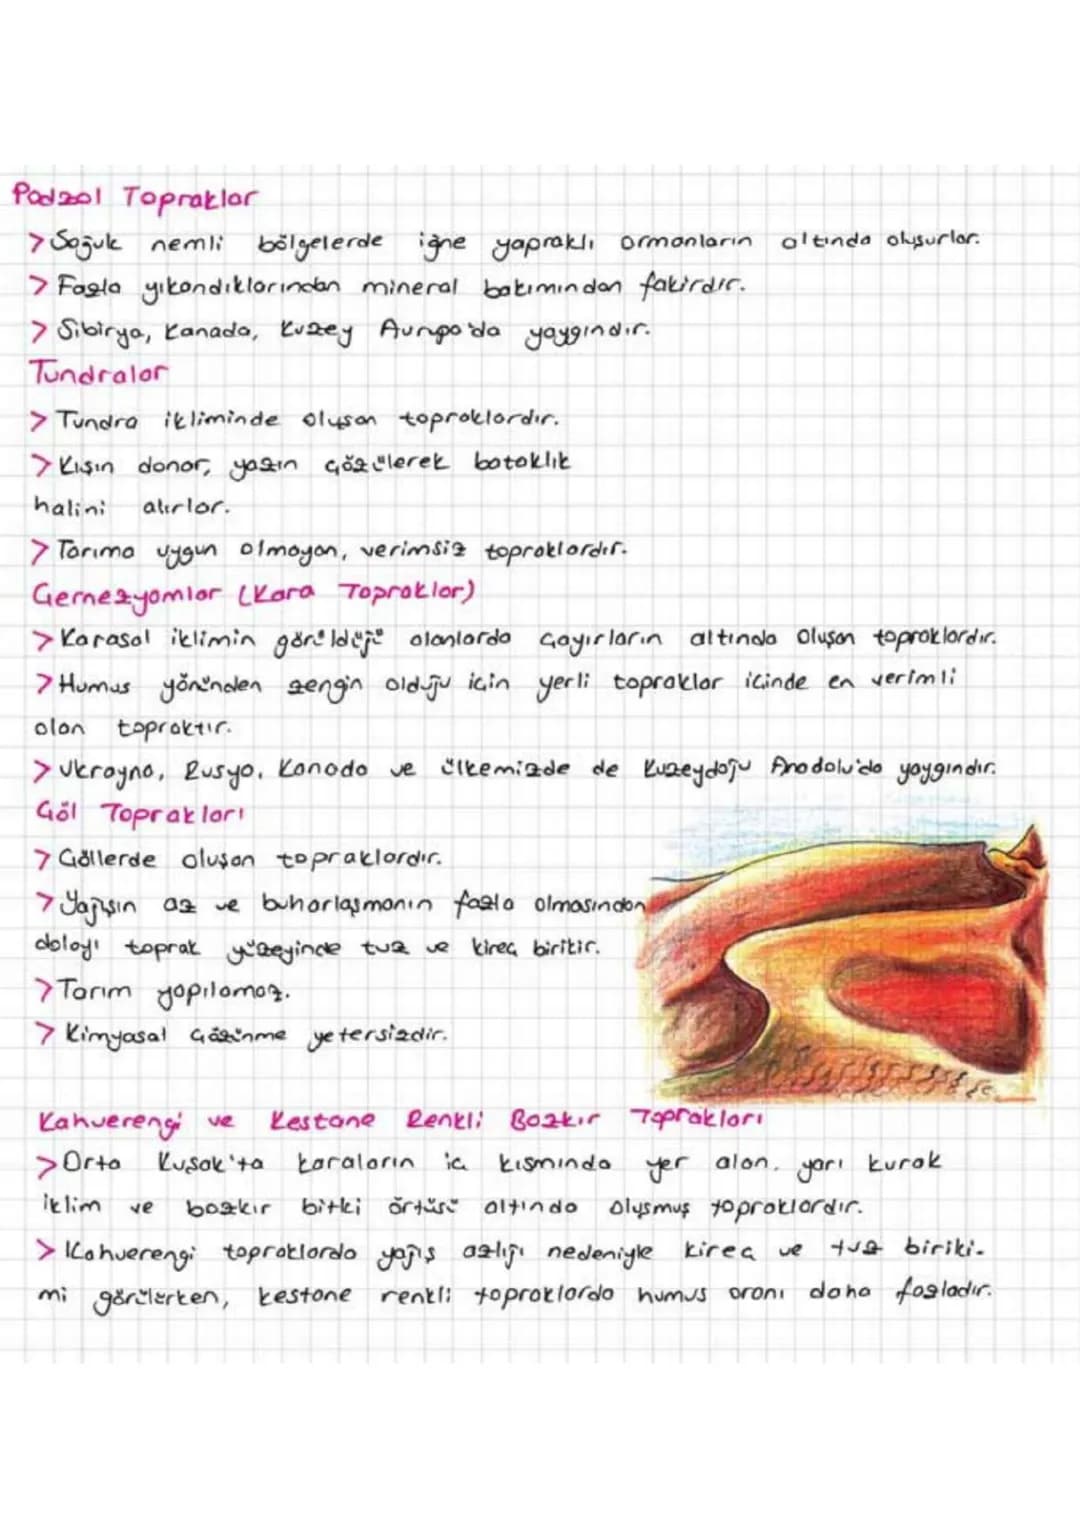 Podzol Topraklar
> Soğuk nemli bölgelerde iğne yapraklı ormanların altında oluşurlar.
> Fazla yıkandıklarından mineral bakımından fakirdir.
> Sibirya, Kanada, Kuzey Avrupa'da yaygındır.
Tundralar
> Tundra ikliminde oluşan topraklardır.
> Kışın donar, yazın çözülerek bataklık
halini alırlar.
> Tarıma uygun olmayan, verimsiz topraklardır.
Çernezyomlar (Kara Topraklar)
> Karasal iklimin görüldüğü alanlarda çayırların altında oluşan topraklardır.
> Humus yönünden zengin olduğu için yerli topraklar içinde en verimli
olan topraktır.
> Ukrayna, Rusya, Kanada ve ülkemizde de Kuzeydoğu Anadolu'da yaygındır.
Çöl Toprakları
> Çöllerde oluşan topraklardır.
> Yağışın az ve buharlaşmanın fazla olmasından
dolayı toprak yüzeyinde tuz ve kireç birikir.
> Tarım yapılamaz.
> Kimyasal çözünme yetersizdir.
Kahverengi ve Kestane Renkli Bozkır Toprakları
> Orta Kuşak'ta karaların iç kısmında yer alan, yarı kurak
iklim ve bozkır bitki örtüsü altında oluşmuş topraklardır.
> Kahverengi topraklarda yağış azlığı nedeniyle kireç ve tuz biriki-
mi görülürken, kestane renkli topraklarda humus oranı daha fazladır.